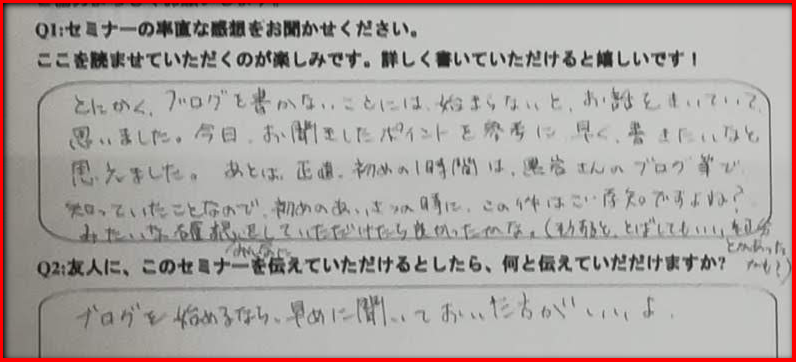 Q1:セミナーの率直な感想をお聞かせください。
ここを読ませていただくのが楽しみです。詳しく書いていただけると嬉しいです!
とにかく、ブログを書かないことには、始まらないと、お話をきいていて、
思いました。今日、お聞きしたポイントを参考に、早く、書きたいなと
思えました。あとは、正直、初めの1時間は、熊谷さんのブログ等で、
知っていたことなので、初めのあいさつの時に、この件はご存知ですよね?
みたいな確認をみんなにしていただけたら良かったかな。(そうすると、とばしてもいい部分とかあったかも?)
Q2:友人に、このセミナーを伝えていただけるとしたら、何と伝えていだだけますか?
ブログを始めるなら、早めに聞いておいた方がいいよ。